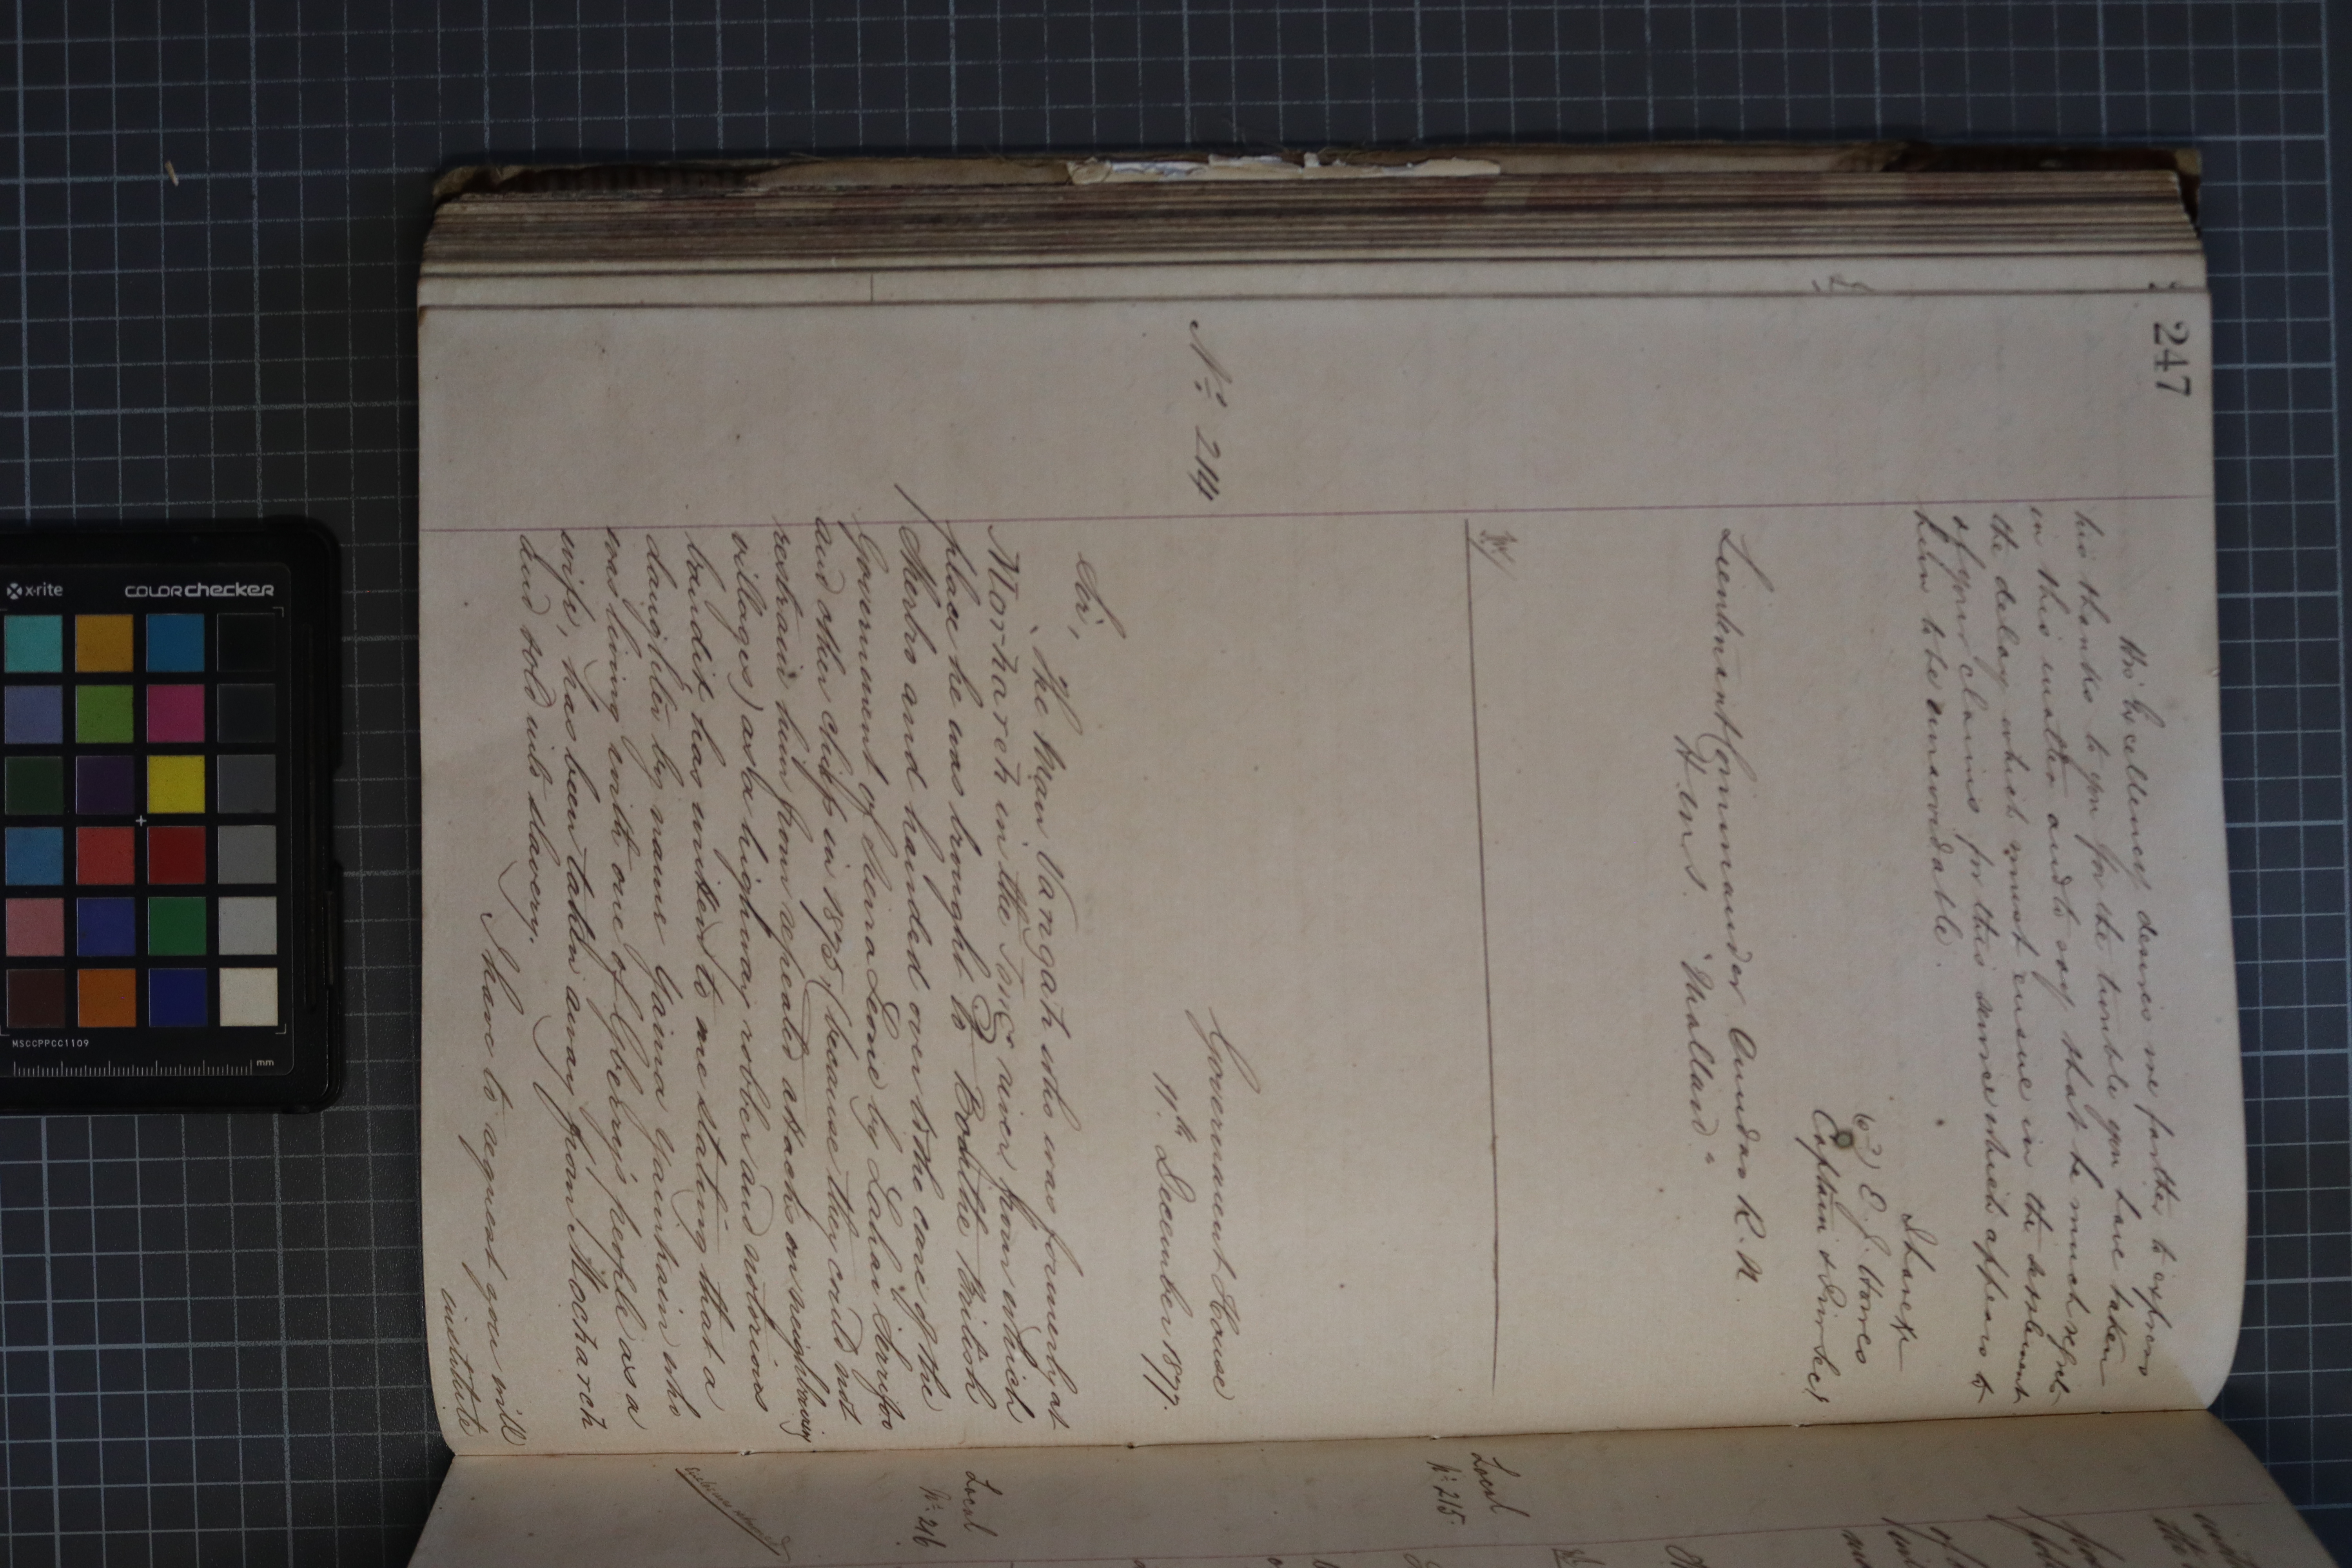 247
His Excellency desires me further to express
his thanks to you for the trouble you have taken
in this matter and to say that he much regrets
the delay which must ensue in the settlement
of your claims for this sum which appears to
him to be unavoidable.
I have &c
E. J.
Captain & Dir
Lieutenant Commander R.N.
H.M.S. "Mallard"
No. 214
Government House
11th December 1877.
Sir,
The man Vangah who was formerly at
Morharch in the river from which
place he was brought to Bonthe British
Sherbro and handed over to the care of the
Government of Sierra Leone by Lahai Serifoo
and other chiefs in 1875 (because they could not
restrain him from repeated attacks on neighbouring
villages) as a highway robber and notorious
bandit has written to me stating that a
daughter by name Gainna Yainhain who
was living with one of Gberry's people as a
wife, has been taken away from Mocharch
and sold into slavery.
I have to request you will
institute
Local
No. 215.
Local
No. 216
x-rite
COLORchecker
MSCCPPCC1109
mm